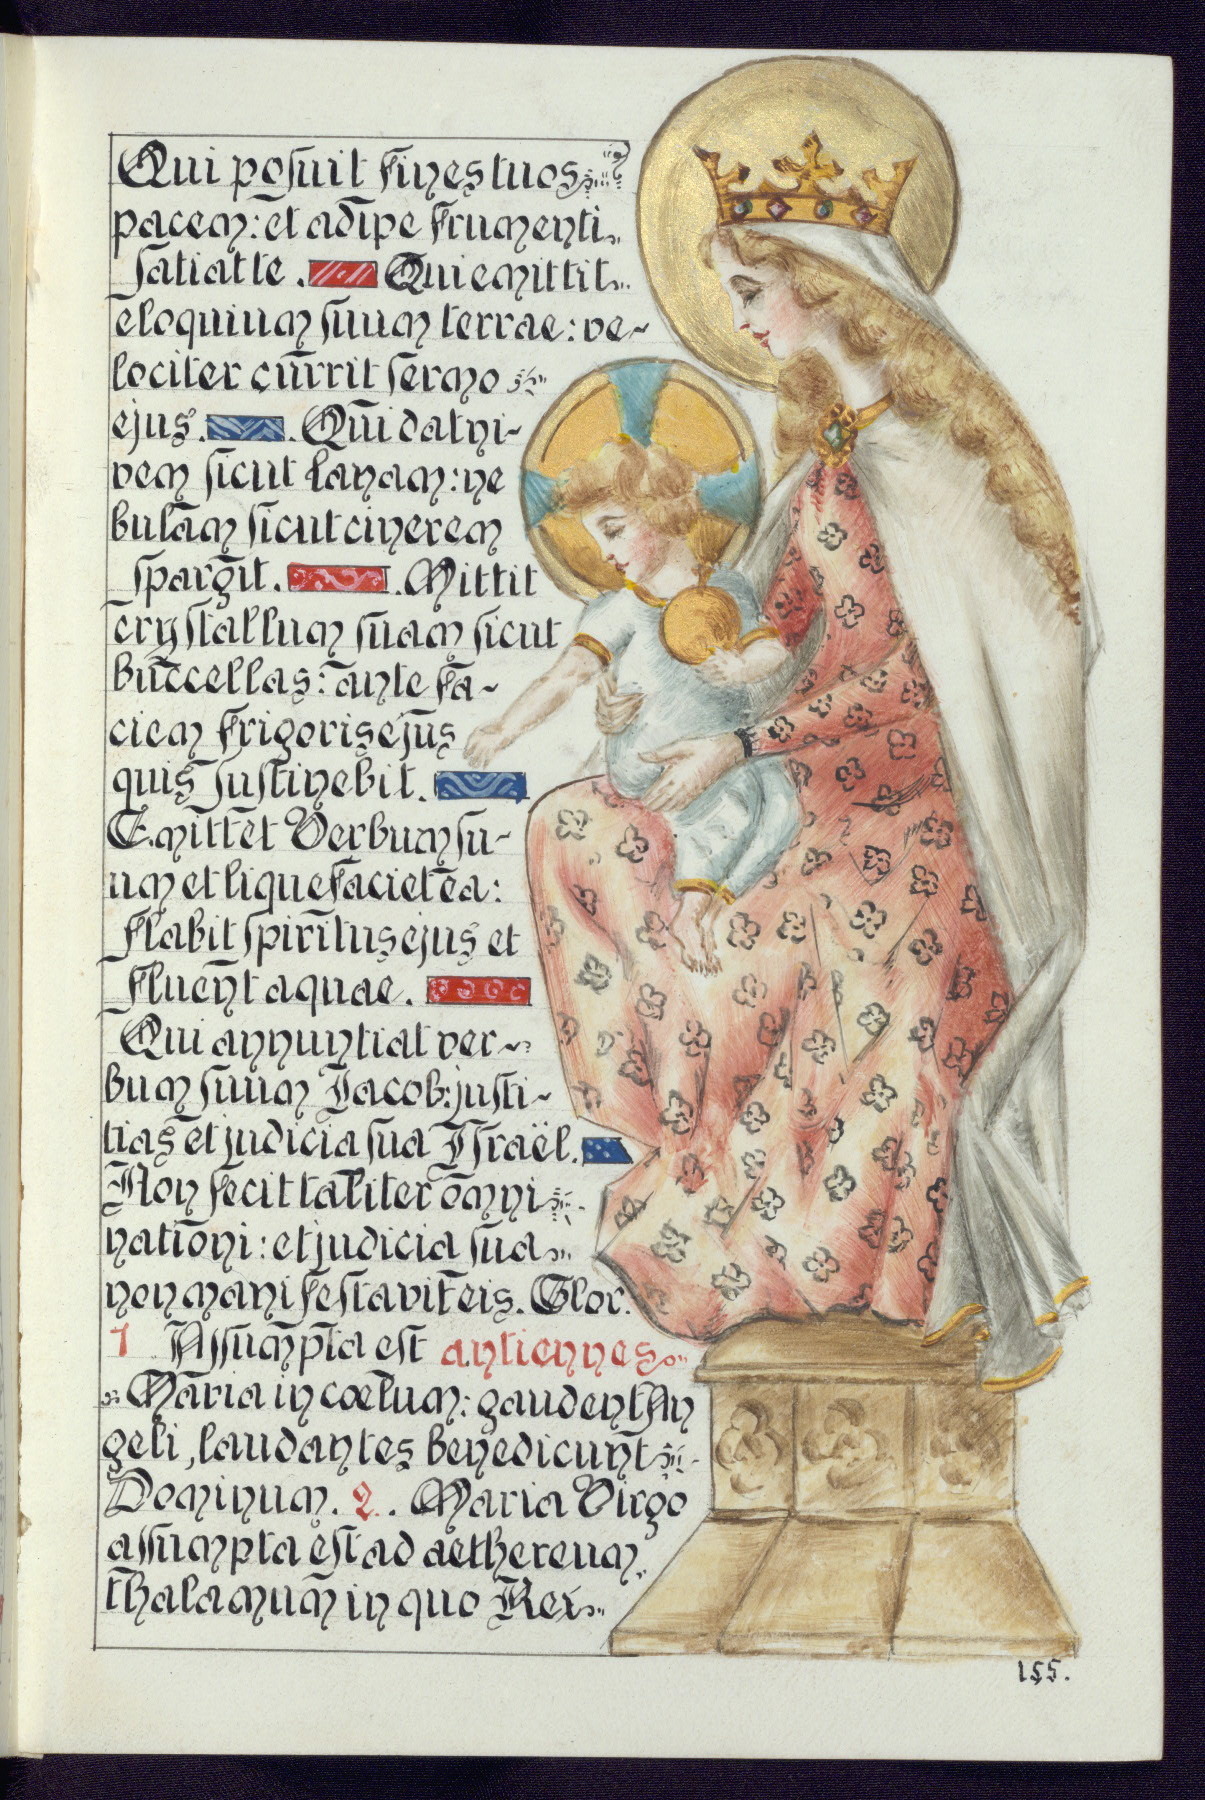 Qui posuit fines tuos
pacem: et adipe frumenti
satiat te. Qui emittit
eloquium suum terrae: ve~
lociter currit sermo
ejus. Qui dat ni-
vem sicut lanam: ne
bulam sicut cinerem
spargit. Mittit
crystallum suam sicut
buccellas: ante fa~
ciem frigoris ejus
quis sustinebit.
Emittet Verbum su-
um et liquefaciet ea:
flabit spiritus ejus et
fluent aquae.
Qui annuntiat ver~
bum suum Jacob: justi~
tias et judicia sua Israël.
Non fecit taliter omni
nationi: et judicia sua
non manifestavit eis. Glor.
1 Assumpta est antiennes
Maria in coelum: gaudent An
geli, laudantes benedicunt
Dominum. 2. Maria Virgo
assumpta est ad aethereum
thalamum in quo Rex
155.